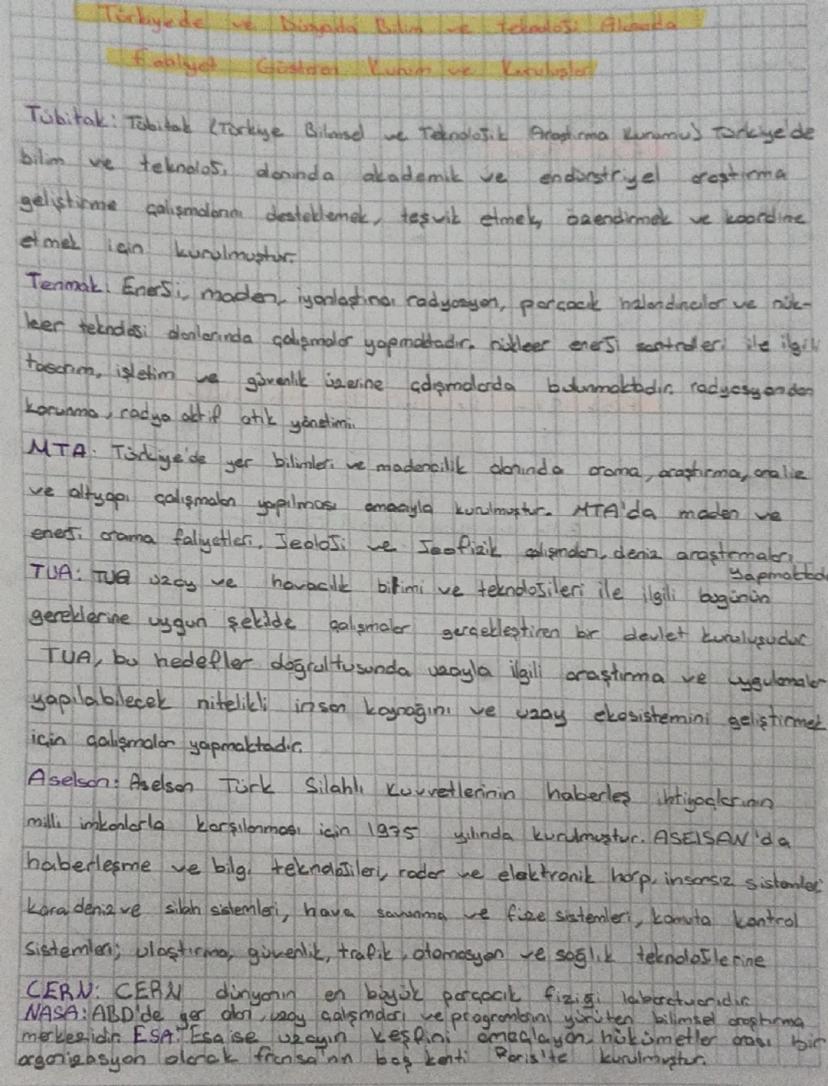 Türkiyede ve Dünyada Bilim ve teknoloji Alanında
Faaliyet Gösteren Kurum ve Kuruluşlar
Tübitak: Tübitak (Türkiye Bilimsel ve Teknolojik Araştırma Kurumu) Türkiye'de
bilim ve teknoloji alanında akademik ve endüstriyel araştırma
geliştirme çalışmalarını desteklemek, teşvik etmek, özendirmek ve koordine
etmek için kurulmuştur.
Tenmak: Enerji, maden, iyonlaştırıcı radyasyon, parçacık hızlandırıcılar ve nük-
leer teknoloji alanlarında çalışmalar yapmaktadır. nükleer enerji santralleri ile ilgili
tasarım, işletim ve güvenlik üzerine çalışmalarda bulunmaktadır. radyasyondan
korunma, radyo aktif atık yönetimi.
MTA: Türkiye'de yer bilimleri ve madencilik alanında arama, araştırma, analiz
ve altyapı çalışmaları yapılması amacıyla kurulmuştur. MTA'da maden ve
enerji arama faliyetleri, Jeoloji ve Jeofizik çalışmaları, deniz araştırmaları
yapmaktadır
TUA: TUA uzay ve havacılık bilimi ve teknolojileri ile ilgili bugünün
gereklerine uygun şekilde çalışmalar gerçekleştiren bir devlet kuruluşudur
TUA, bu hedefler doğrultusunda uzayla ilgili araştırma ve uygulamalar
yapılabilecek nitelikli insan kaynağını ve uzay ekosistemini geliştirmek
için çalışmalar yapmaktadır.
Aselsan: Aselsan Türk Silahlı Kuvvetlerinin haberleş ihtiyaçlarının
milli imkanlarla karşılanması için 1975 yılında kurulmuştur. ASELSAN'da
haberleşme ve bilgi teknolojileri, radar ve elektronik harp, insansız sistemler
kara deniz ve silah sistemleri, hava savunma ve füze sistemleri, komuta kontrol
sistemleri; ulaştırma, güvenlik, trafik, otomasyon ve sağlık teknolojilerine
CERN: CERN dünyanın en büyük parçacık fiziği laboratuarıdır
NASA: ABD'de yer alan, uzay çalışmaları ve programlarını yürüten bilimsel araştırma
merkezidir. ESA: Esa ise uzayın keşfini amaçlayan, hükümetler arası bir
organizasyon olarak fransa'nın baş kenti Paris'te kurulmuştur.